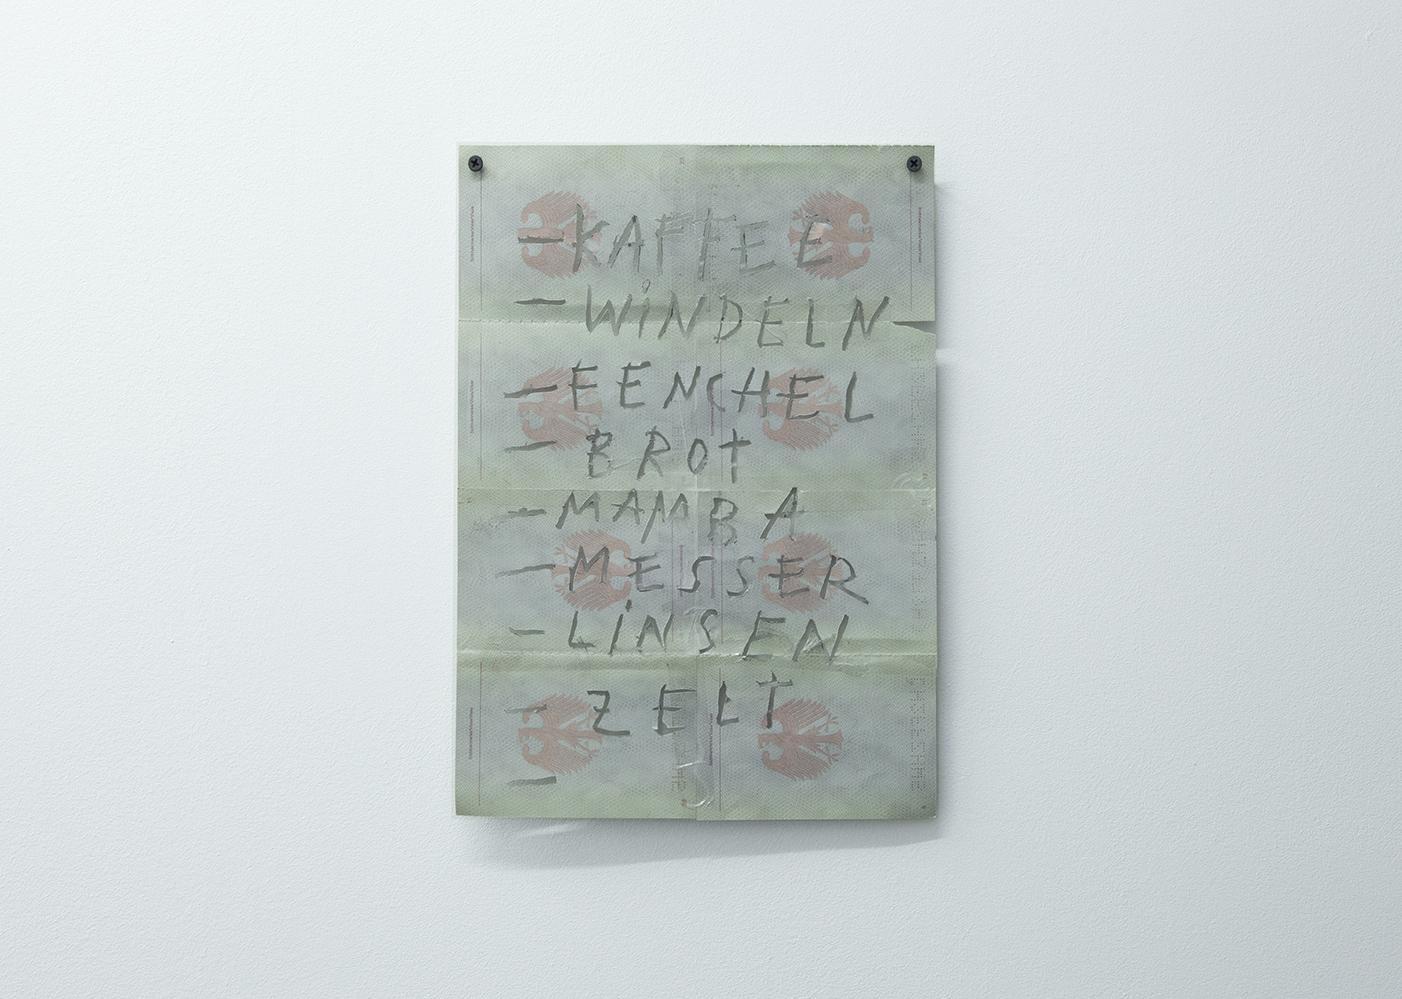 - KAFFEE
- WiNDELN
- FENCHEL
- BROT
- MAMBA
- MESSER
- LiNSEN
- ZELT
-